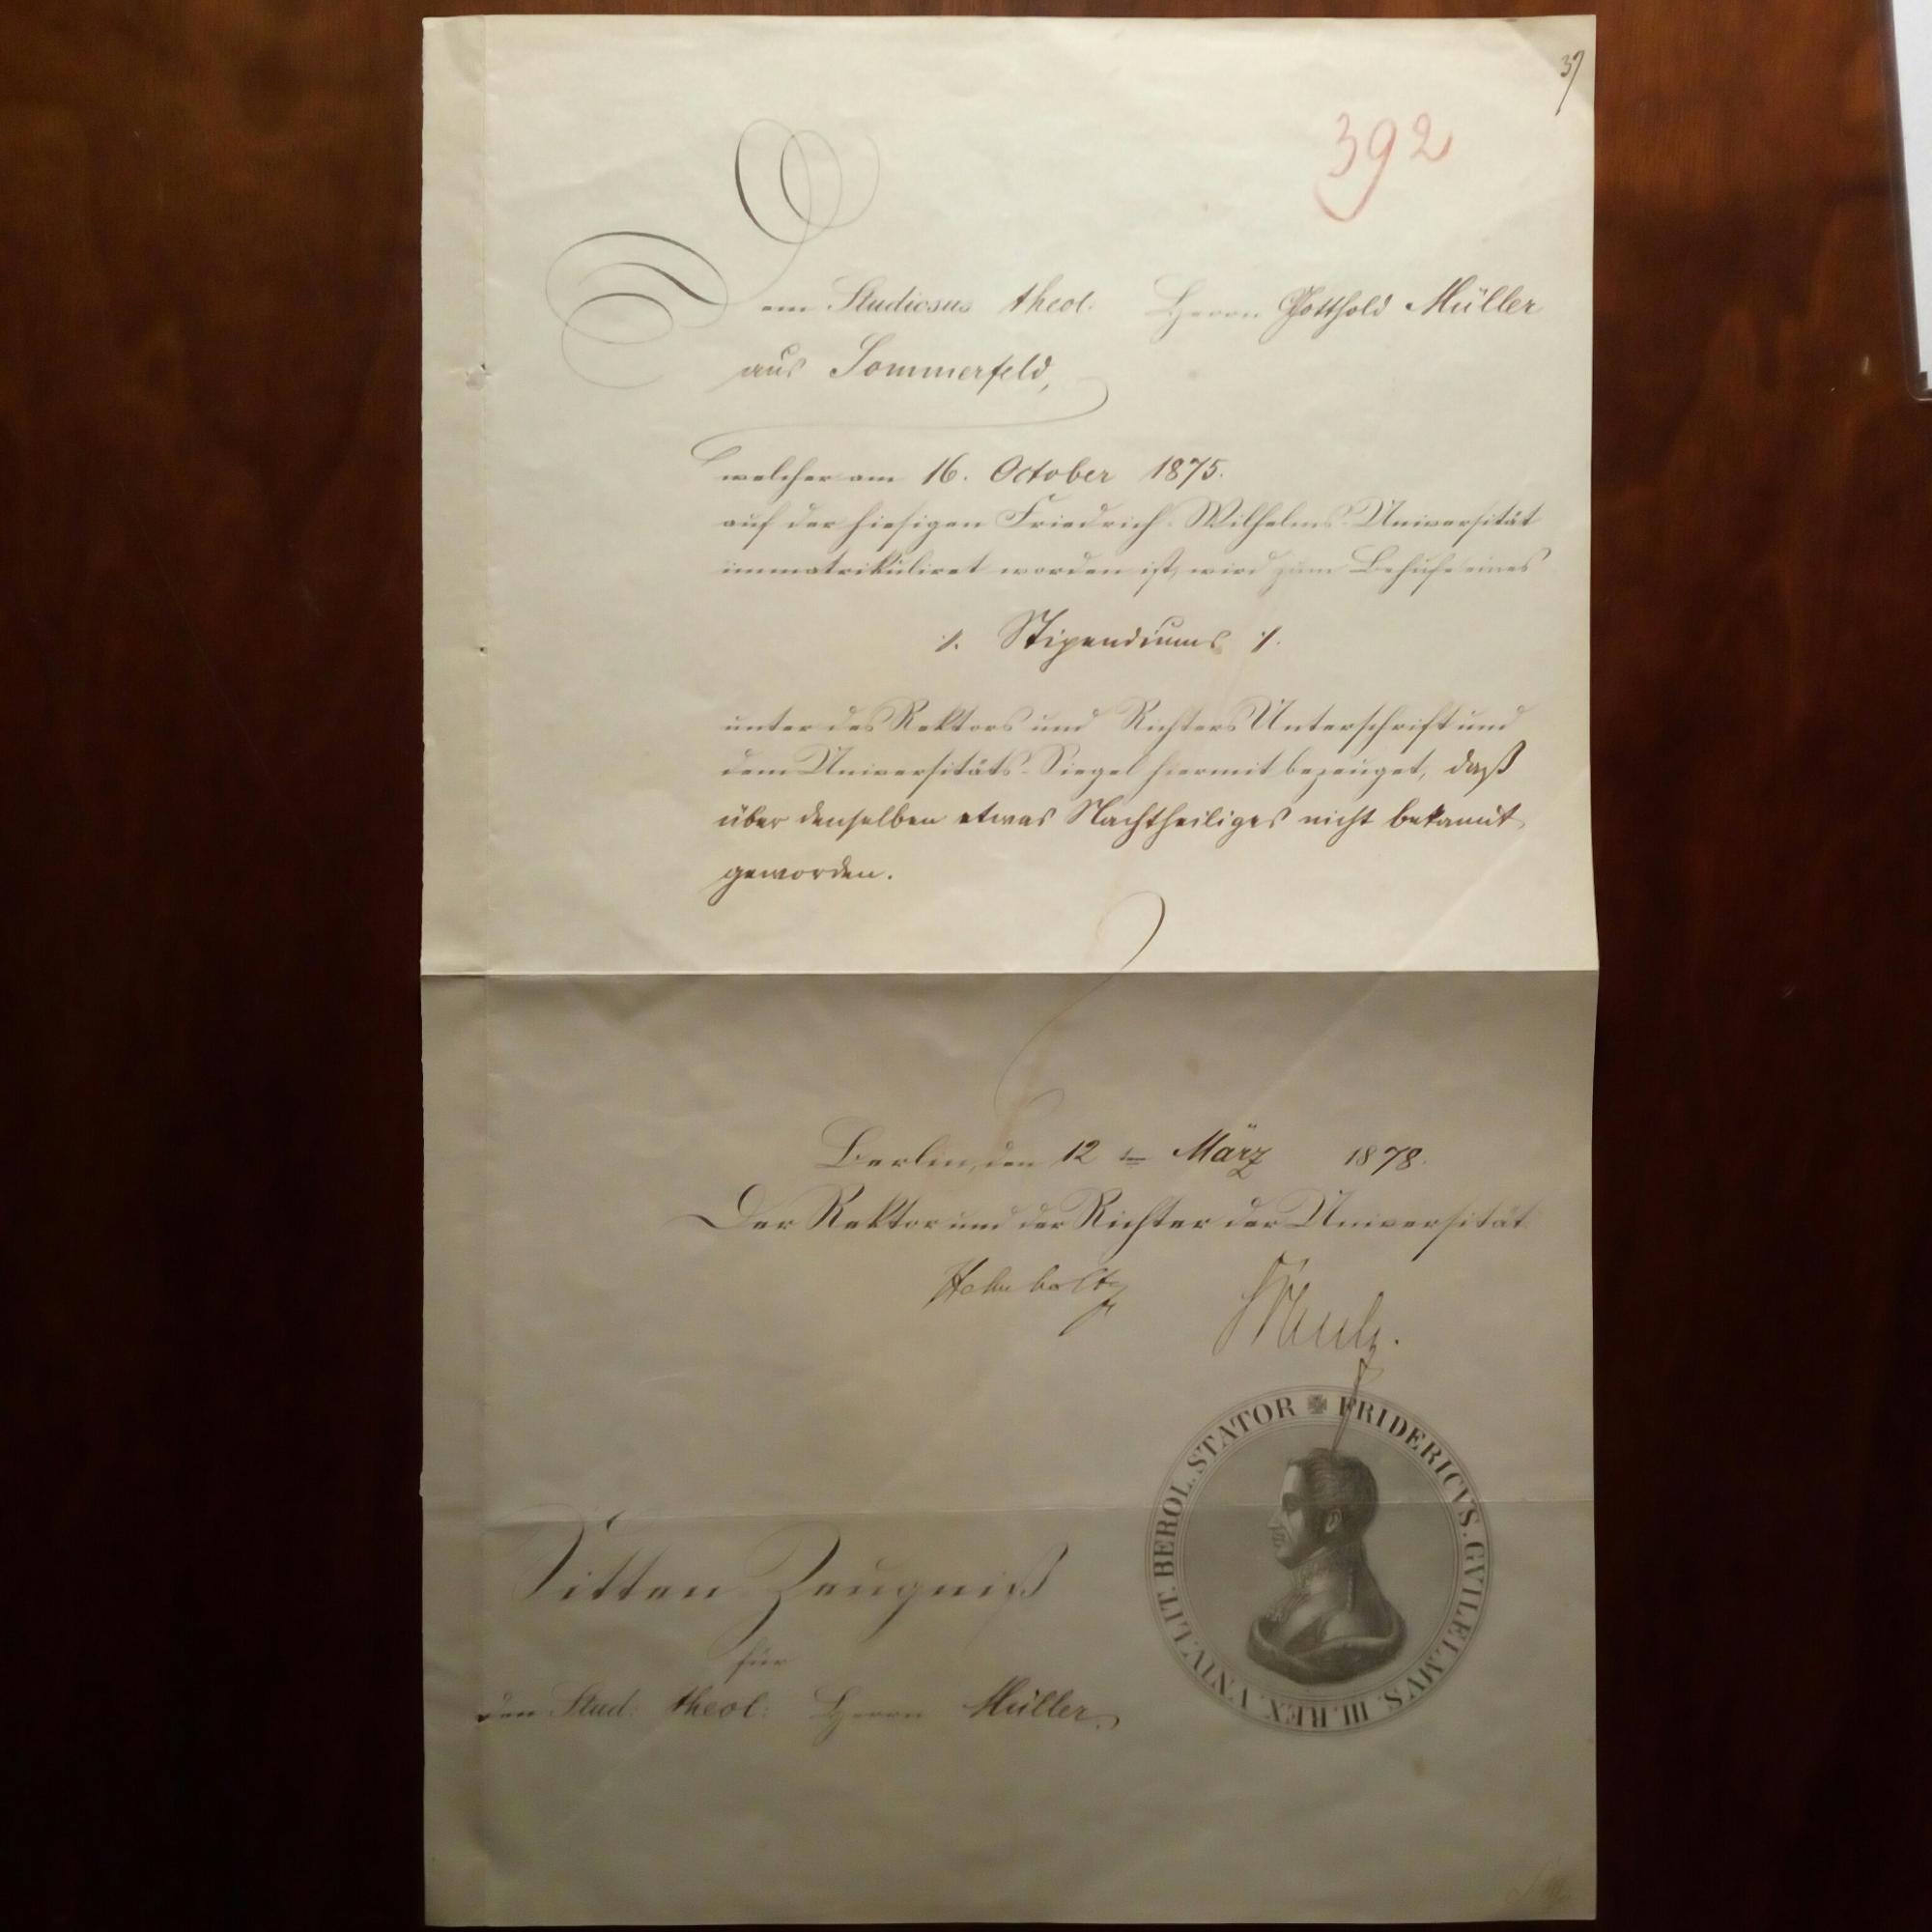 37
392
Dem Studiosus theol: Herrn Gotthold Müller
aus Sommerfeld,
welcher am 16. October 1875.
auf der hiesigen Friedrich-Wilhelms-Universität
immatrikuliret worden ist, wird zum Behufe eines
./. Stipendiums ./.
unter des Rektors und Richters Unterschrift und
dem Universitäts-Siegel hiermit bezeuget, daß
über denselben etwas Nachtheiliges nicht bekannt
geworden.
Berlin, den 12ten März 1878.
Der Rektor und der Richter der Universität
Helmholtz
Schulz.
FRIDERICVS. GVILELMVS. III. REX. VNIV. LIT. BEROL. STATOR
Sitten-Zeugniß
für
den Stud. theol: Herrn Müller.